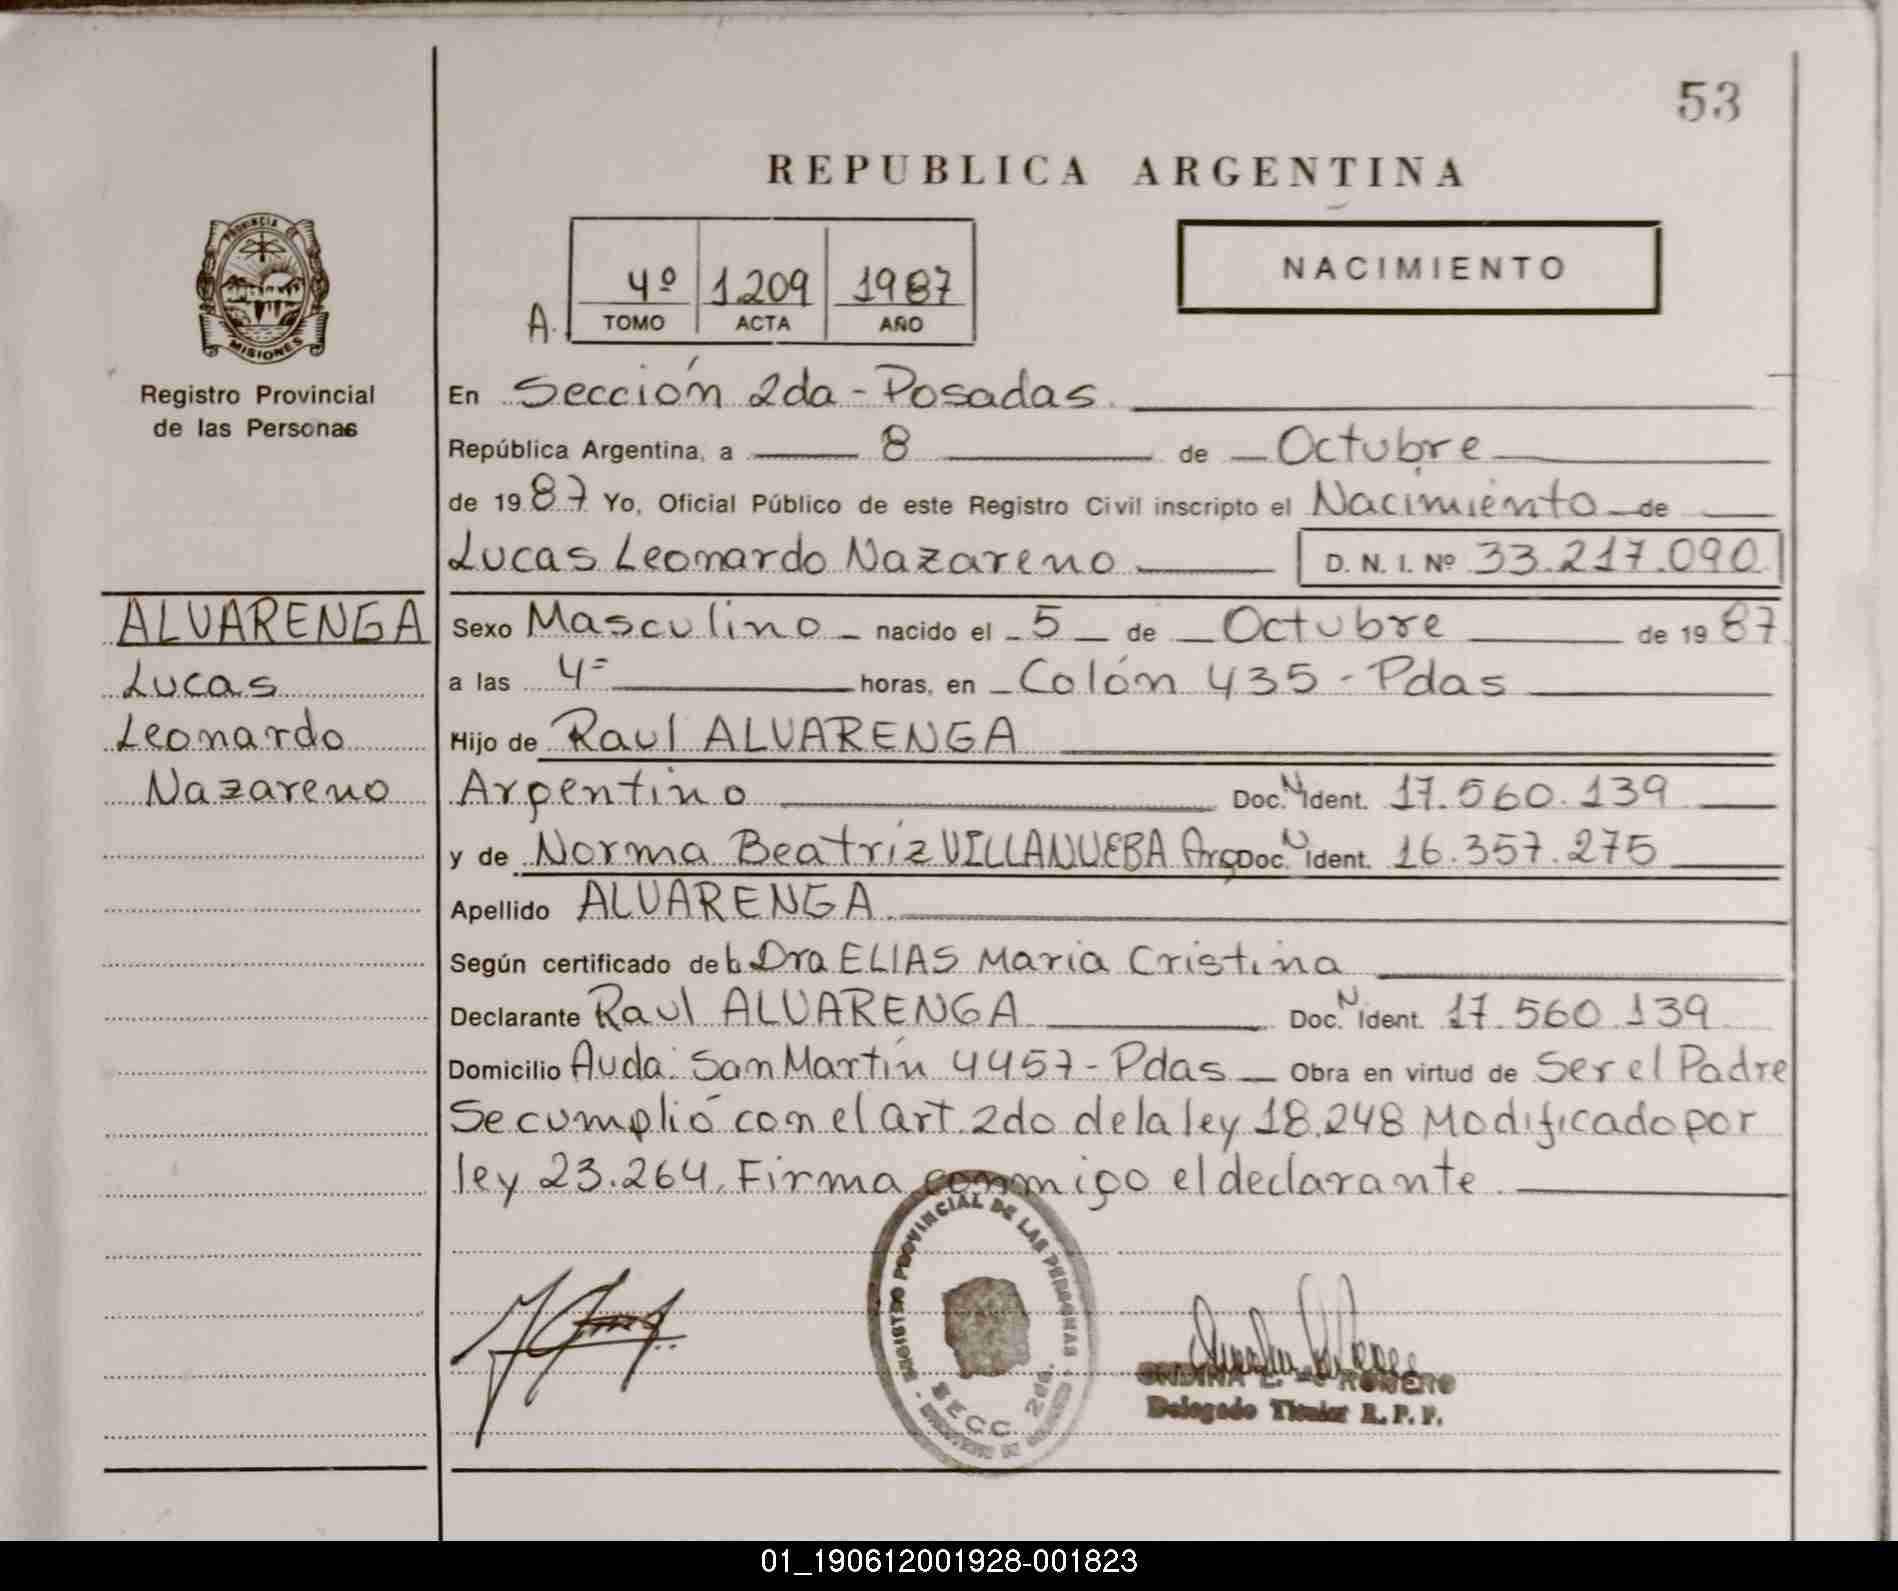 53
REPUBLICA ARGENTINA
PROVINCIA DE
MISIONES
Registro Provincial
de las Personas
A. 4º 1209 1987
TOMO ACTA AÑO
NACIMIENTO
En Sección 2da - Posadas
República Argentina, a 8 de Octubre
de 1987 Yo, Oficial Público de este Registro Civil inscripto el Nacimiento de
Lucas Leonardo Nazareno D. N. I. Nº 33.217.090
ALVARENGA
Lucas
Leonardo
Nazareno
Sexo Masculino nacido el 5 de Octubre de 1987
a las 4= horas, en Colón 435 - Pdas
Hijo de Raul ALVARENGA
Argentino Doc. N Ident. 17.560.139
y de Norma Beatriz VILLANUEBA Arg Doc. N Ident. 16.357.275
Apellido ALVARENGA
Según certificado de la Dra ELIAS Maria Cristina
Declarante Raul ALVARENGA Doc. N Ident. 17.560.139
Domicilio Avda. San Martín 4457 - Pdas Obra en virtud de Ser el Padre
Se cumplió con el art. 2do de la ley 18.248 Modificado por
ley 23.264. Firma conmigo el declarante
REGISTRO PROVINCIAL DE LAS PERSONAS
SECC. 2da.
ROMERO
Delegado Titular R. P. P.
01_190612001928-001823